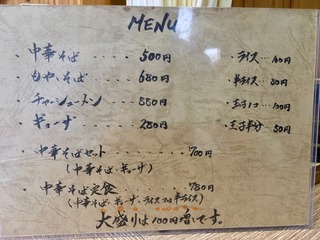 MENU
・中華そば ‥‥‥ 500円
・もやしそば ‥‥‥ 680円
・チャーシューメン ‥‥ 880円
・ギョーザ ‥‥‥ 280円
・ライス‥‥ 100円
・半ライス‥‥ 80円
・玉子1コ‥‥ 100円
・玉子半分‥ 50円
・中華そばセット ‥‥‥ 700円
(中華そば・ギョーザ)
・中華そば定食 ‥‥‥ 780円
(中華そば・ギョーザ、ライス又は半ライス)
大盛りは100円増です。